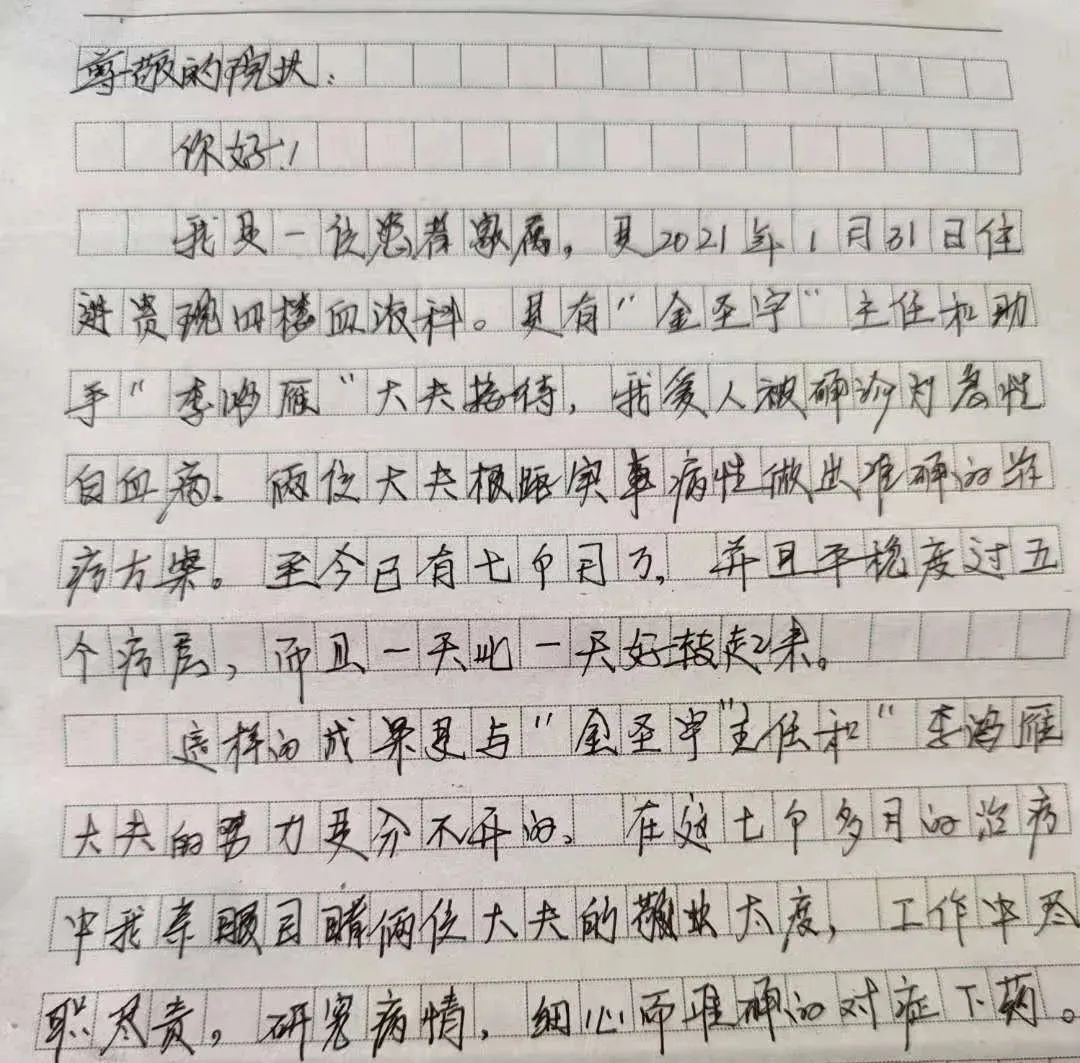 尊敬的院长:
你好!
我是一位患者家属,是2021年1月31日住
进贵院四楼血液科。是有"金圣宇"主任和助
手"李鸿雁"大夫接待,我爱人被确诊为急性
白血病。俩位大夫根据实事病性做出准确的治
疗方案。至今已有七个月了,并且平稳度过五
个疗层,而且一天比一天好转起来。
这样的成果是与"金圣宇"主任和"李鸿雁
大夫的努力是分不开的。在这七个多月的治疗
中我亲眼目睹俩位大夫的敬业太度,工作中尽
职尽责。研究病情,细心而准确的对症下药。